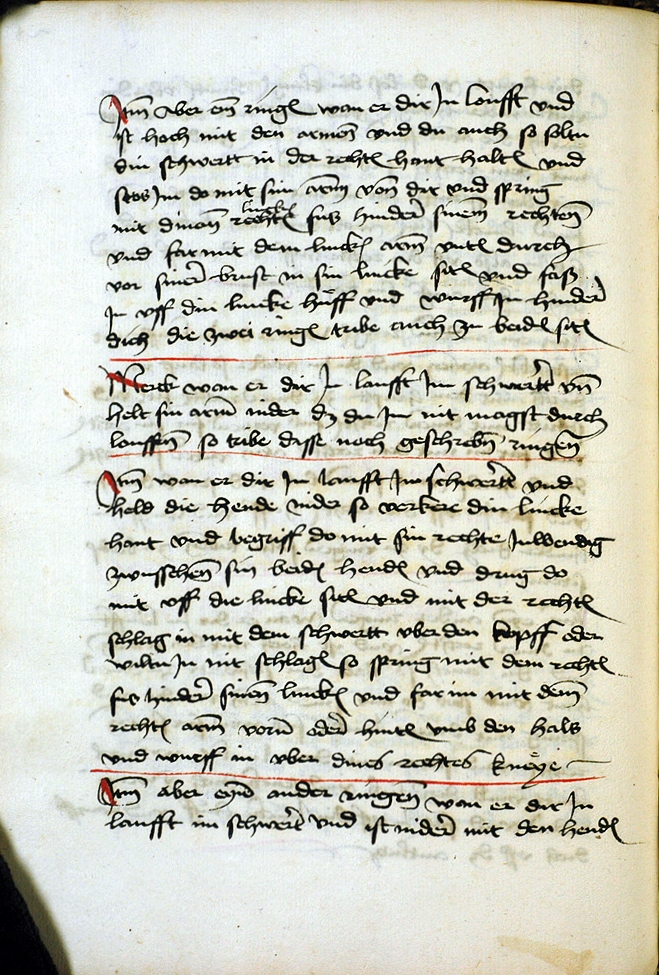 Jtm aber ein ringē wan er dir Jn loufft vnd
ist hoch mit den armen vnd du auch so soltu
din schwertt in der rechtē hant haltē vnd
stos Jm do mit sin arm von dir vnd spring
linckē
mit dinem rechtē fus hinder sinem rechten
vnd far mit dem linckē arm vntē durch
vor siner brust in sin lincke sitē vnd fasß
Jn vff din lincke hüff vnd würff Jn hinder
dich die zwei ringē tribe auch zu beidē sitē
Merck wan er dir Jn laufft Jm schwertt vn̄
helt sin arm nider dz du Jm nit magst durch
louffen so tribe disse noch geschrebn̄ ringen
Jtm wan er dir Jn laufft Jm schwertt vnd
held die hende nider so verkere din lincke
hant vnd begriff do mit sin rechte Jnwendig
zwusschen sin beidē hendē vnd drug do
mit vff die lincke sitē vnd mit der rechtē
schlag in mit dem schwertt vber den kopff oder
wiltu Jn nit schlagē so spring mit dem rechtē
fus hinder sinen linckē vnd far im mit dem
rechtē arm vorn oder hintē vmb den hals
vnd wurff in vber dines rechtes kneÿe
Jtm aber eyn ander ringen wan er dir Jn
laufft im schwert vnd ist nider mit den hendē